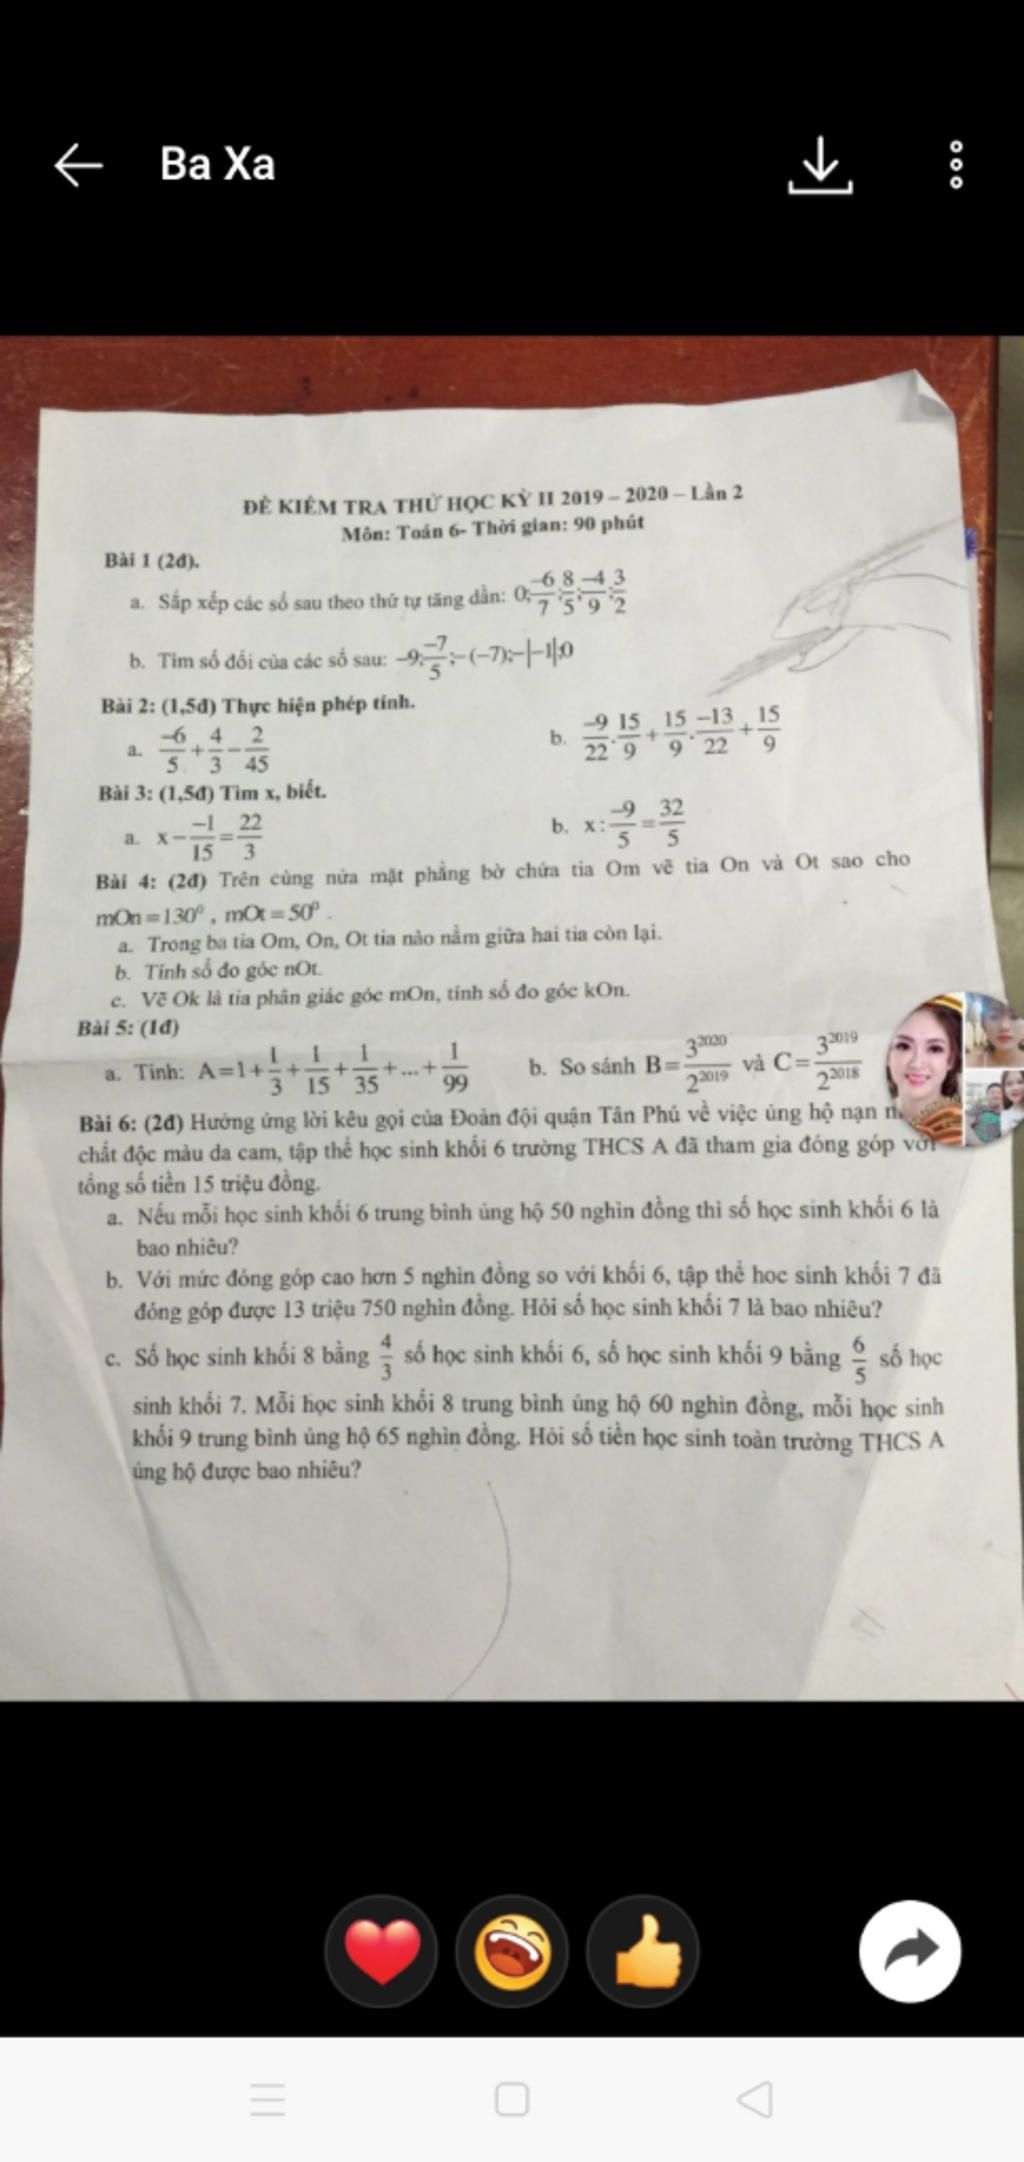 Ba Xa
ĐỀ KIỂM TRA THỬ HỌC KỲ II 2019 – 2020 – Lần 2
Môn: Toán 6- Thời gian: 90 phút
Bài 1 (2đ).
a. Sắp xếp các số sau theo thứ tự tăng dần: 0; -6/7; 8/5; -4/9; 3/2
b. Tìm số đối của các số sau: -9; -7/5; -(-7); -|-1|; 0
Bài 2: (1,5đ) Thực hiện phép tính.
a. -6/5 + 4/3 - 2/45 b. -9/22 . 15/9 + 15/9 . -13/22 + 15/9
Bài 3: (1,5đ) Tìm x, biết.
a. x - -1/15 = 22/3 b. x : -9/5 = 32/5
Bài 4: (2đ) Trên cùng nửa mặt phẳng bờ chứa tia Om vẽ tia On và Ot sao cho
mOn = 130⁰ , mOt = 50⁰ .
a. Trong ba tia Om, On, Ot tia nào nằm giữa hai tia còn lại.
b. Tính số đo góc nOt.
c. Vẽ Ok là tia phân giác góc mOn, tính số đo góc kOn.
Bài 5: (1đ)
a. Tính: A=1+ 1/3 + 1/15 + 1/35 +...+ 1/99 b. So sánh B= 3²⁰²⁰/2²⁰¹⁹ và C= 3²⁰¹⁹/2²⁰¹⁸
Bài 6: (2đ) Hưởng ứng lời kêu gọi của Đoàn đội quận Tân Phú về việc ủng hộ nạn
chất độc màu da cam, tập thể học sinh khối 6 trường THCS A đã tham gia đóng góp với
tổng số tiền 15 triệu đồng.
a. Nếu mỗi học sinh khối 6 trung bình ủng hộ 50 nghìn đồng thì số học sinh khối 6 là
bao nhiêu?
b. Với mức đóng góp cao hơn 5 nghìn đồng so với khối 6, tập thể hoc sinh khối 7 đã
đóng góp được 13 triệu 750 nghìn đồng. Hỏi số học sinh khối 7 là bao nhiêu?
c. Số học sinh khối 8 bằng 4/3 số học sinh khối 6, số học sinh khối 9 bằng 6/5 số học
sinh khối 7. Mỗi học sinh khối 8 trung bình ủng hộ 60 nghìn đồng, mỗi học sinh
khối 9 trung bình ủng hộ 65 nghìn đồng. Hỏi số tiền học sinh toàn trường THCS A
ủng hộ được bao nhiêu?